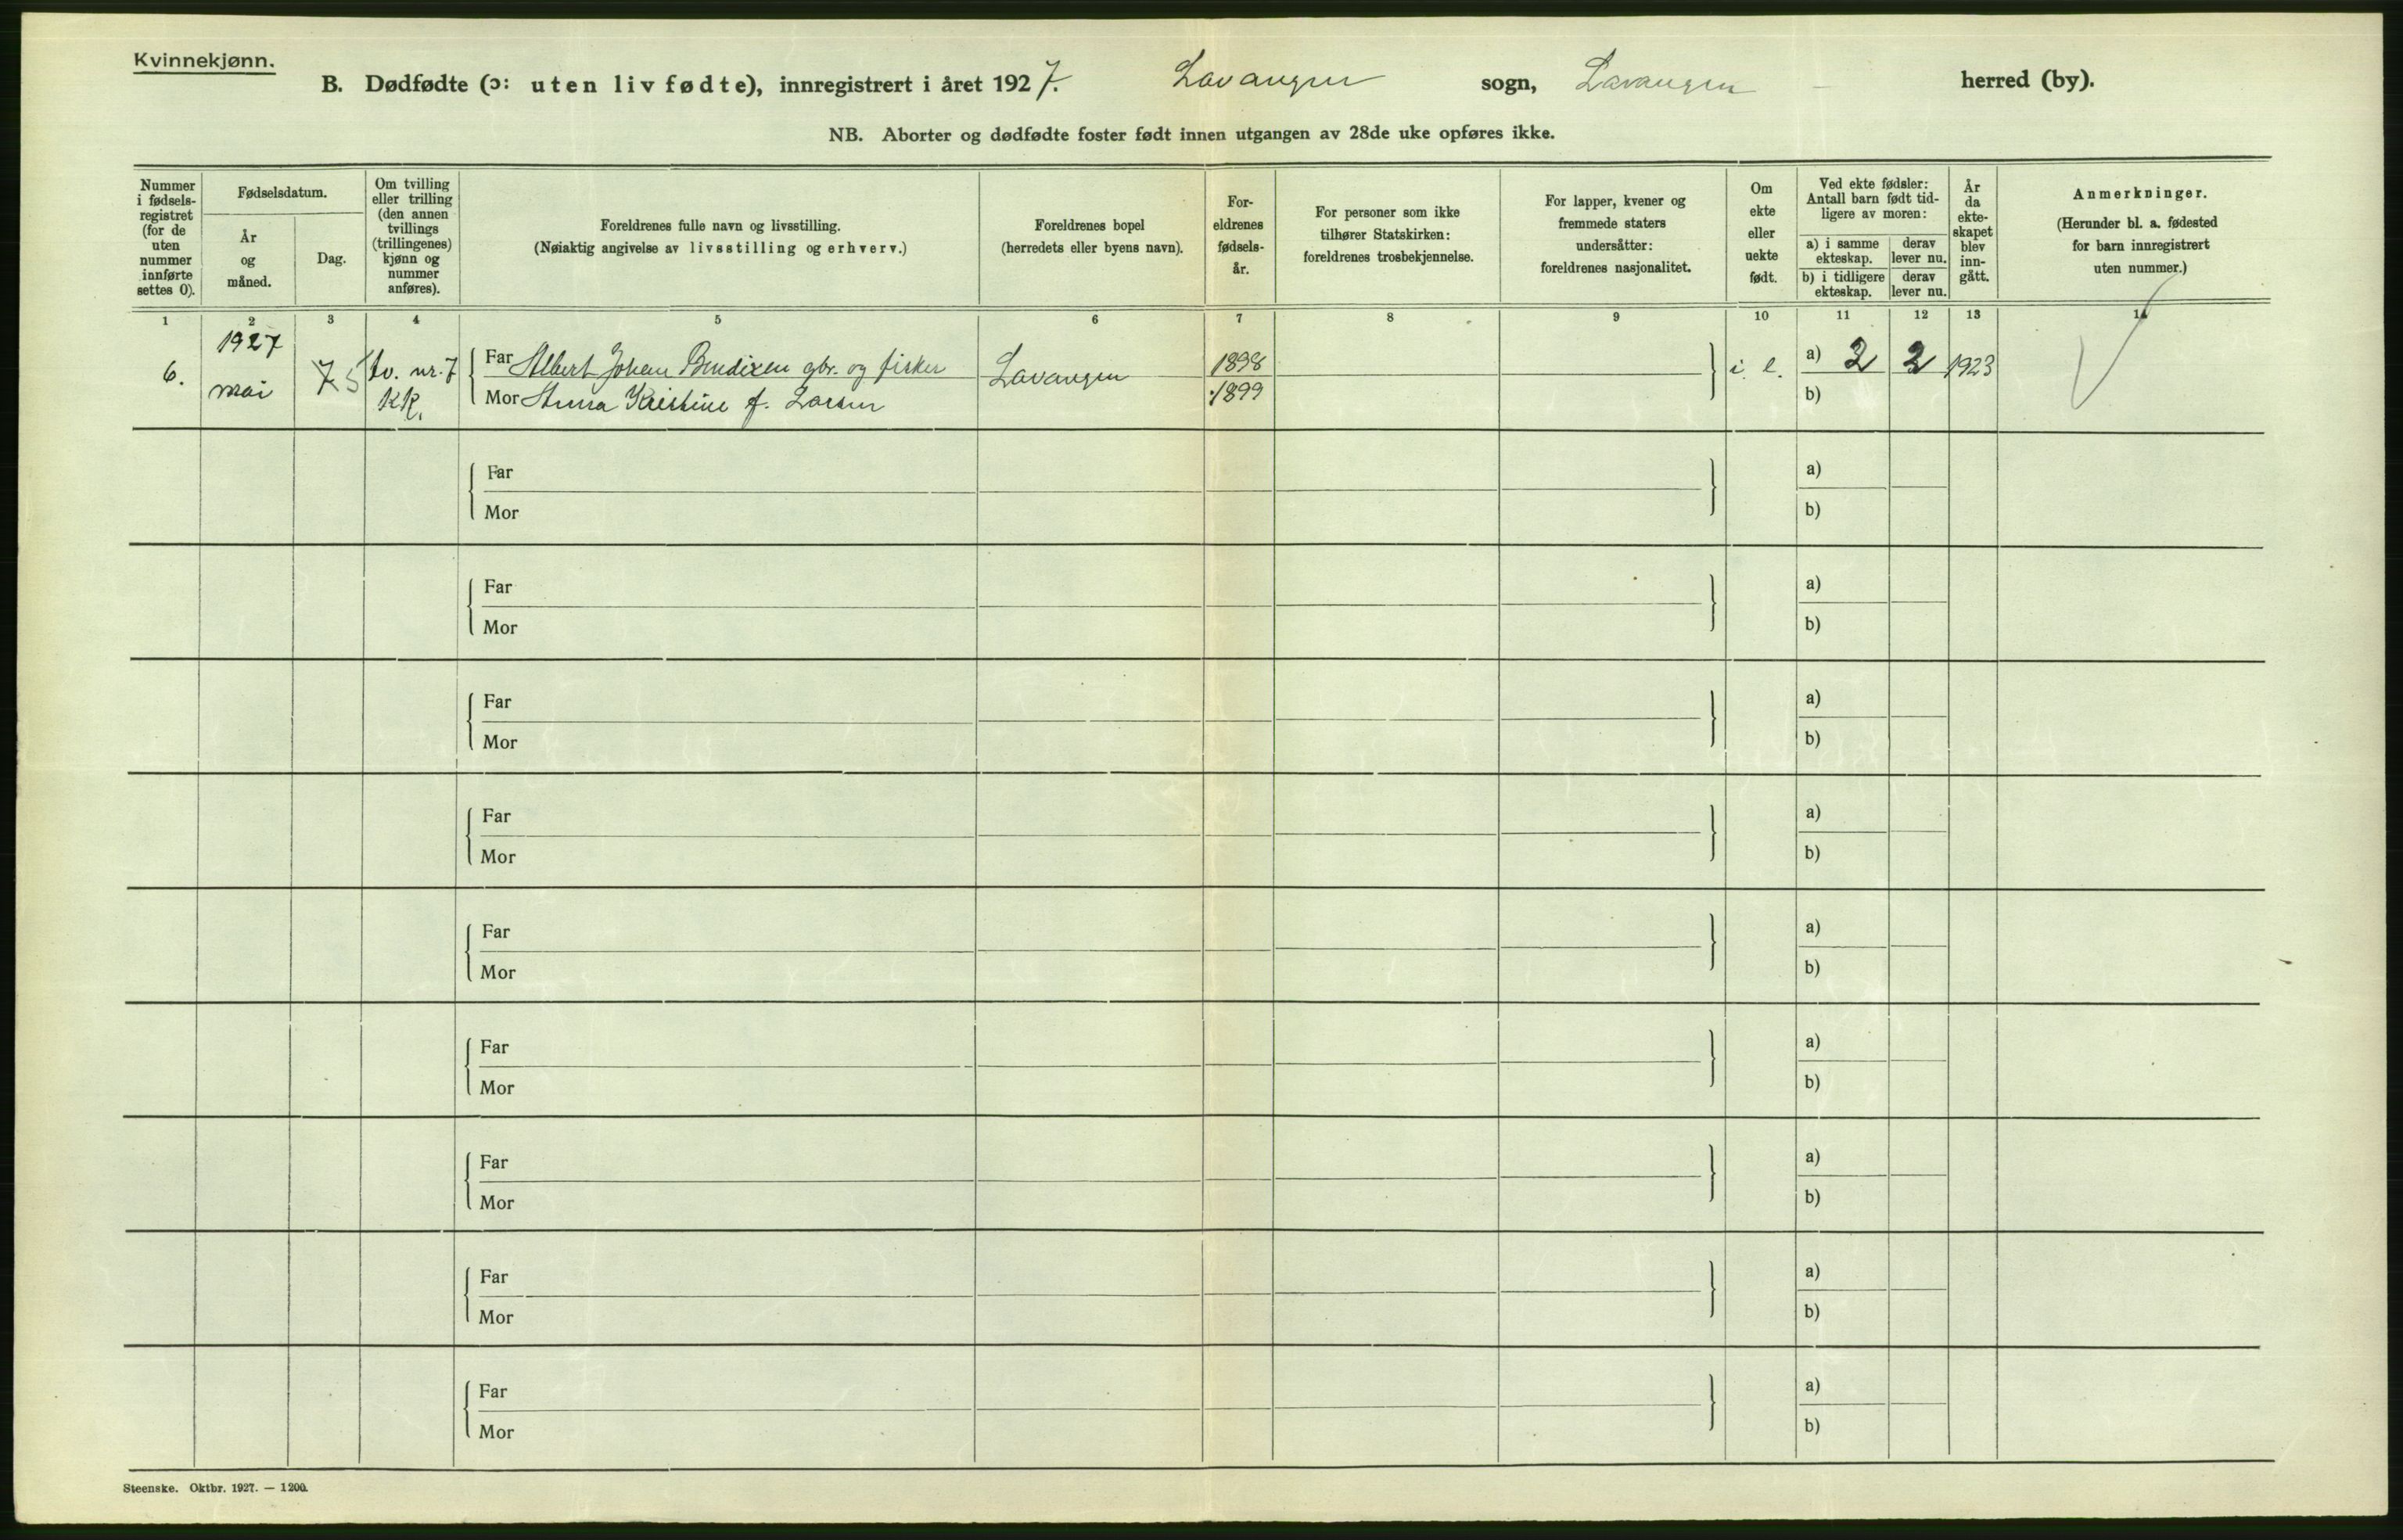 Kvinnekjønn.
B. Dødfødte (ɔ: uten liv fødte), innregistrert i året 1927. Lavangen sogn, Lavangen herred (by).
NB. Aborter og dødfødte foster født innen utgangen av 28de uke opføres ikke.
Nummer
i fødsels-
registret
(for de
uten
nummer
innførte
settes 0).
Fødselsdatum.
År
og
måned.
Dag.
Om tvilling
eller trilling
(den annen
tvillings
(trillingenes)
kjønn og
nummer
anføres).
Foreldrenes fulle navn og livsstilling.
(Nøiaktig angivelse av livsstilling og erhverv.)
Foreldrenes bopel
(herredets eller byens navn).
For-
eldrenes
fødsels-
år.
For personer som ikke
tilhører Statskirken:
foreldrenes trosbekjennelse.
For lapper, kvener og
fremmede staters
undersåtter:
foreldrenes nasjonalitet.
Om
ekte
eller
uekte
født.
Ved ekte fødsler:
Antall barn født tid-
ligere av moren:
a) i samme
ekteskap.
derav
lever nu.
b) i tidligere
ekteskap.
derav
lever nu.
År
da
ekte-
skapet
blev
inn-
gått.
Anmerkninger.
(Herunder bl. a. fødested
for barn innregistrert
uten nummer.)
1 2 3 4 5 6 7 8 9 10 11 12 13 14
1927
6. mai 7 5 tv. nr. 7
KK.
Far Albert Johan Bendixen gbr. og fisker Lavangen 1898 i. e. a) 2 2 1923
Mor Anna Kristine f. Larsen 1899 b)
Far a)
Mor b)
Far a)
Mor b)
Far a)
Mor b)
Far a)
Mor b)
Far a)
Mor b)
Far a)
Mor b)
Far a)
Mor b)
Far a)
Mor b)
Far a)
Mor b)
Steenske. Oktbr. 1927. — 1200.